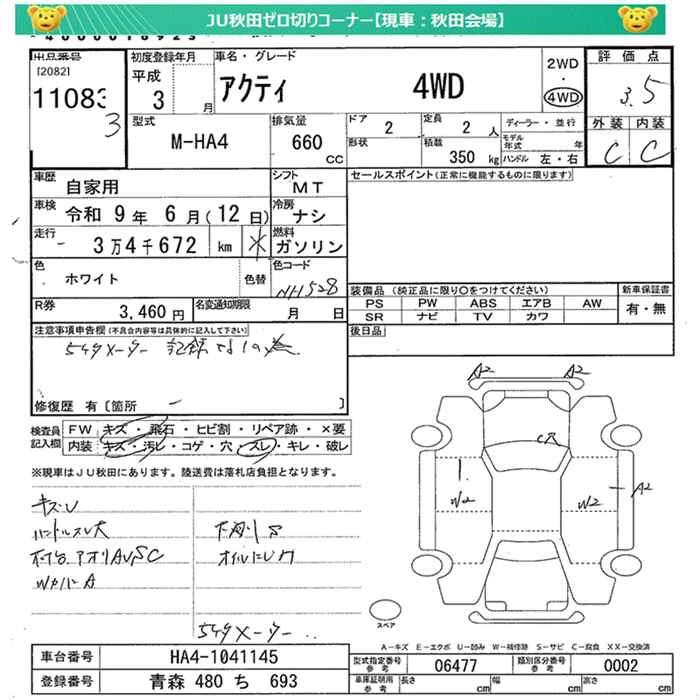 JU秋田ゼロ切りコーナー【現車：秋田会場】
出品番号
[2082]
11083
3
初度登録年月
平成
3 月
車名・グレード
アクティ 4WD
2WD
・
4WD
評価点
3.5
型式
M-HA4
排気量
660
CC
ドア 2
形状
定員 2 人
積載 350 kg
ディーラー・並行
モデル年式 年
ハンドル 左・右
外装 内装
C C
車歴 自家用
シフト MT
セールスポイント(正常に機能するものに限ります)
車検 令和 9年 6月(12日)
冷房 ナシ
走行 3万4千672 km
燃料 ガソリン
色 ホワイト 色替
色コード NH528
装備品 (純正品に限り○をつけてください)
新車保証書
PS PW ABS エアB AW
有・無
SR ナビ TV カワ
R券 3,460円
名変通知期限 月 日
後日品
注意事項申告欄(不具合内容等は具体的に記入して下さい)
修復歴 有 [箇所 ]
検査員記入欄
FW キズ・飛石・ヒビ割・リペア跡・×要
内装 キズ・汚レ・コゲ・穴・スレ・キレ・破レ
※現車はJU秋田にあります。陸送費は落札店負担となります。
A2 A2
C穴
W2 W2 A2
スペア
A－キズ E－エクボ U－凹み W－補修跡 S－サビ C－腐食 XX－交換済
車台番号 HA4-1041145
型式指定番号 参考 06477
類別区分番号 参考 0002
登録番号 青森 480 ち 693
車庫証明用 参考 長さ cm 幅 cm 高さ cm